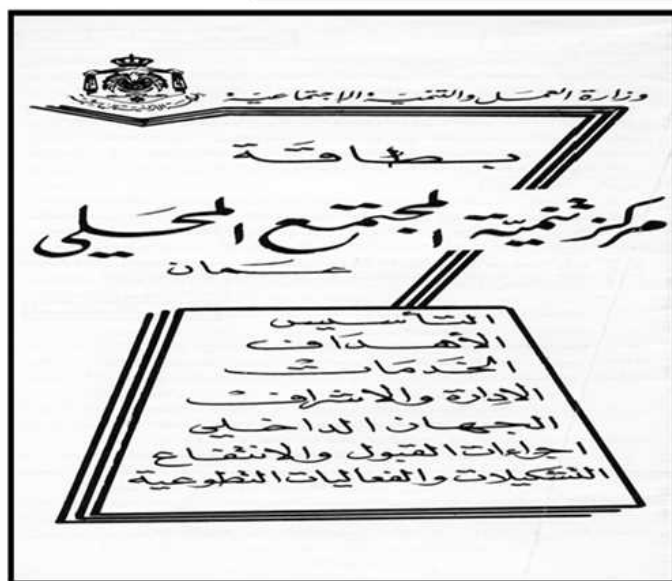 وزارة العمل والتنمية الإجتماعية
بطاقة
مركز تنمية المجتمع المحلي
عمان
التأسيس
الأهداف
الخدمات
الادارة والاشراف
الجهاز الداخلي
اجراءات القبول والانتفاع
التشكيلات والفعاليات التطوعية